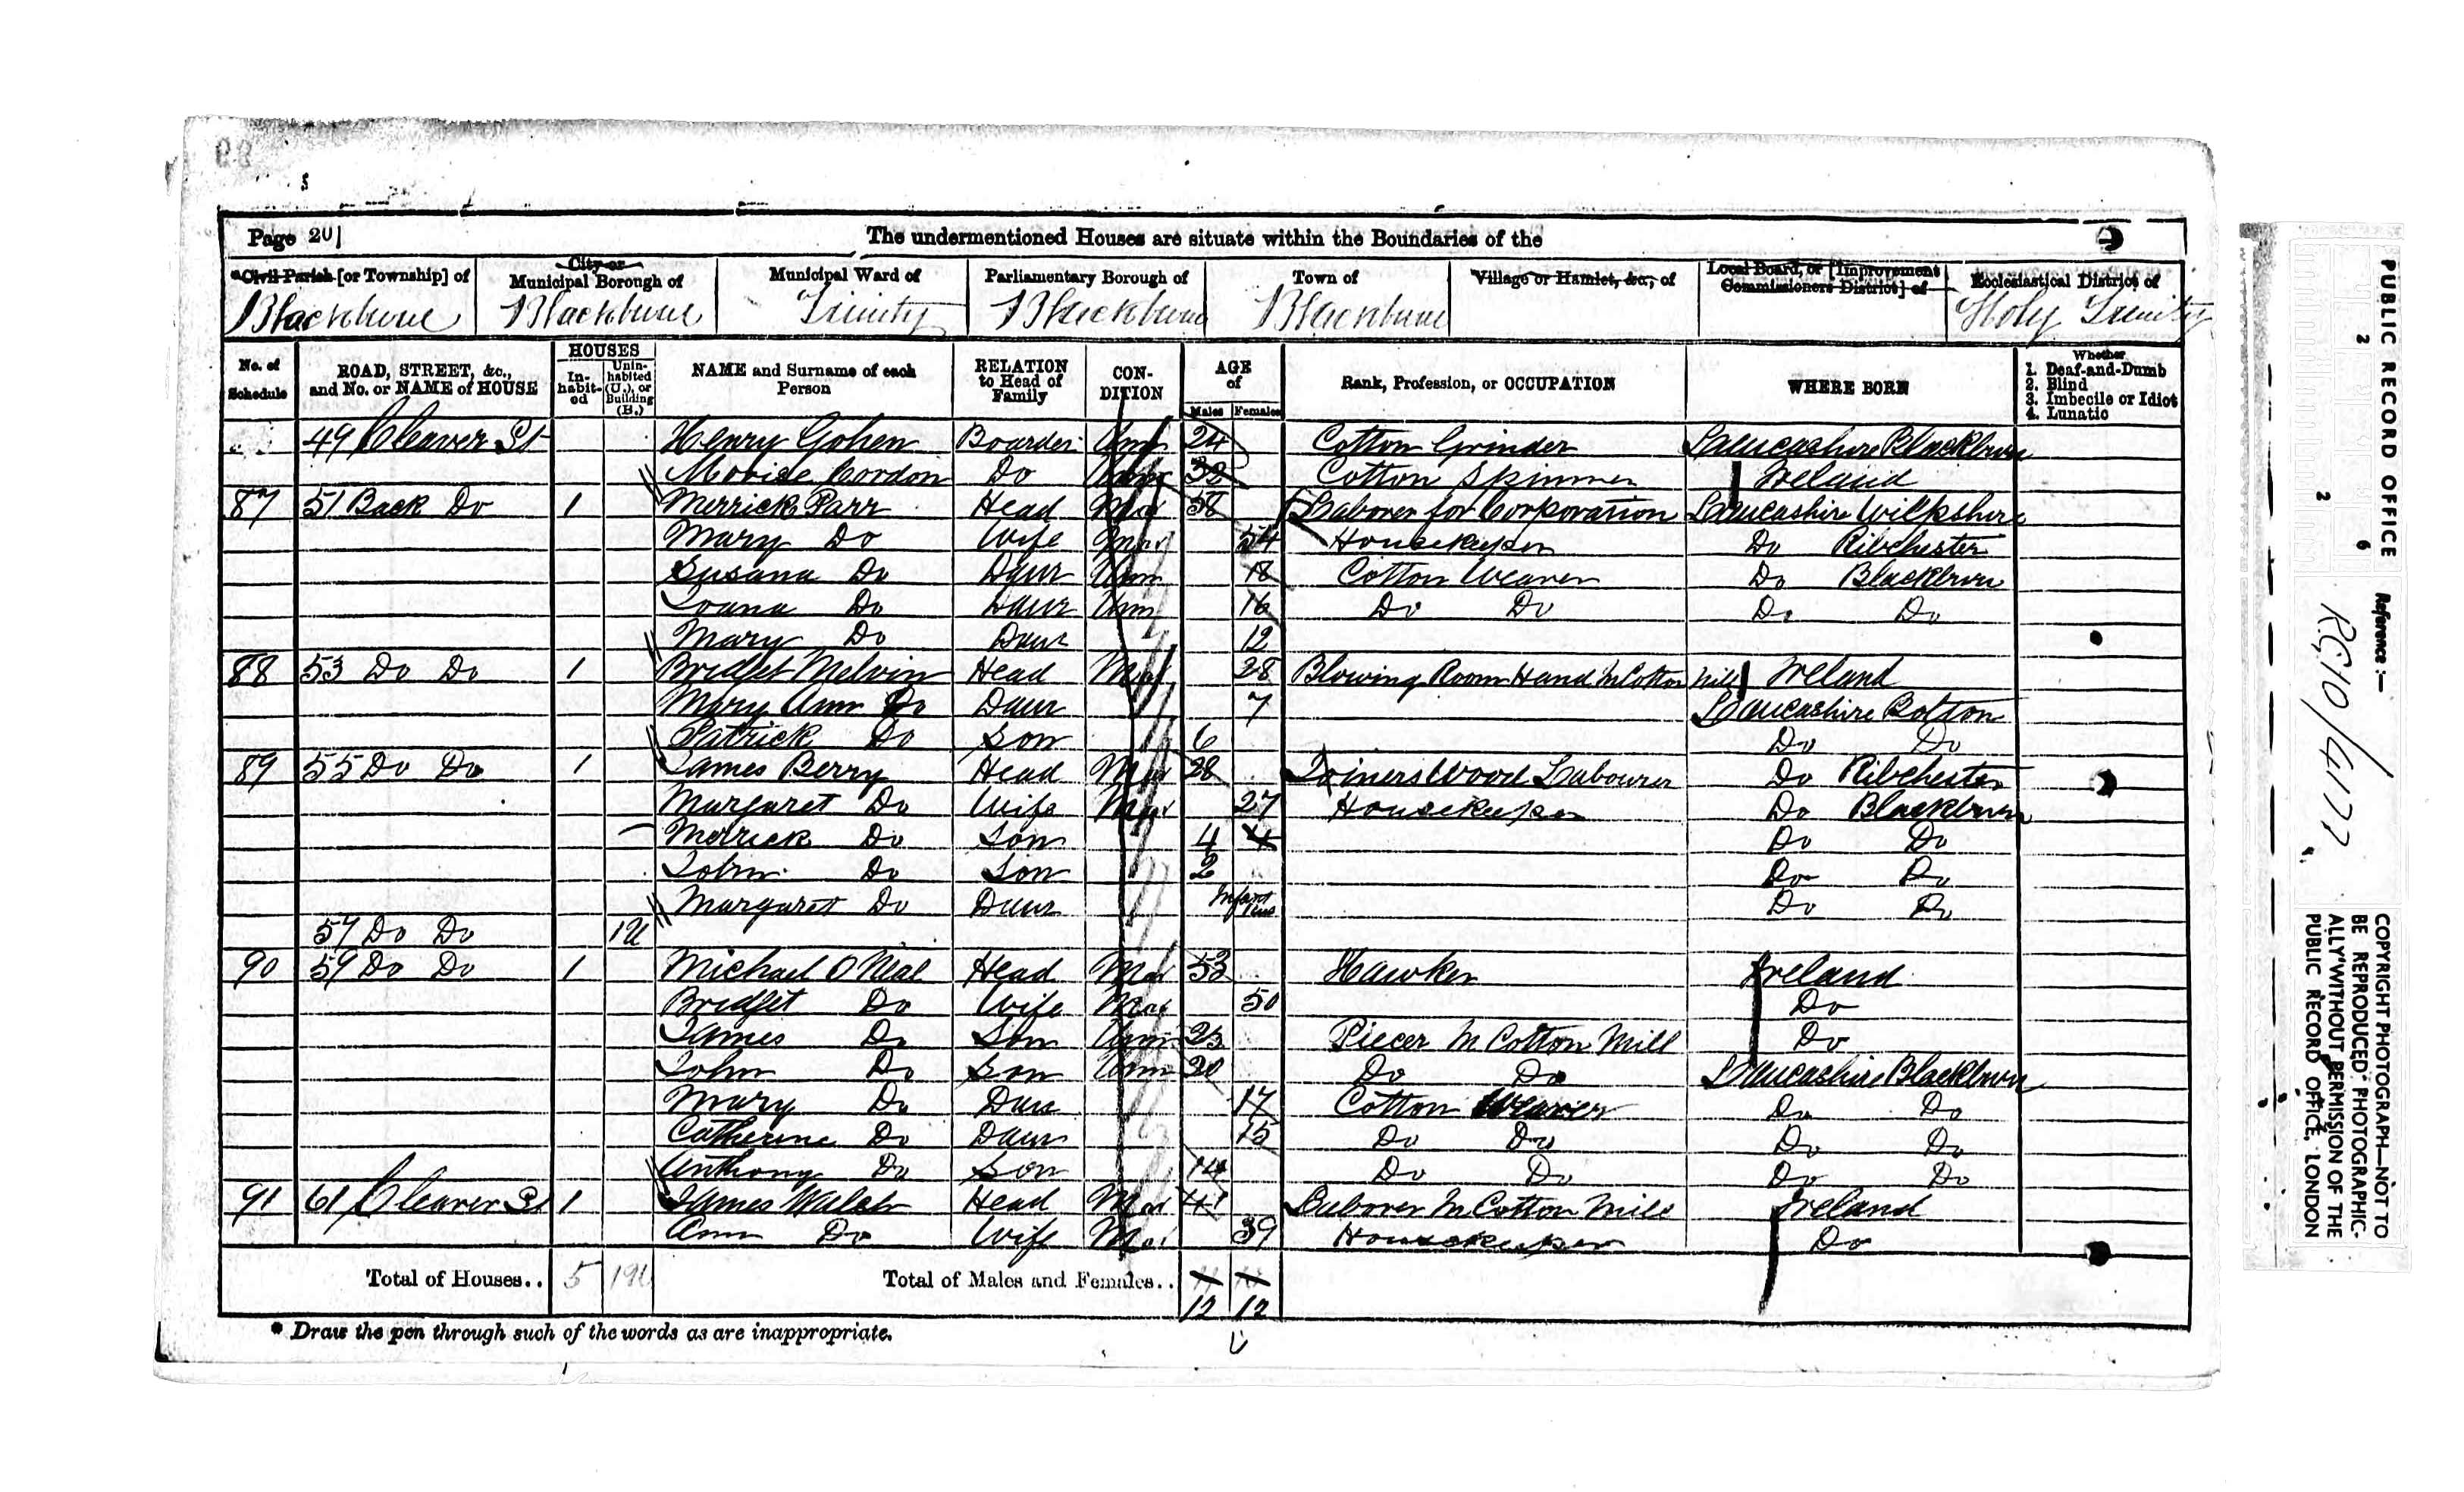 Page 20
The undermentioned Houses are situate within the Boundaries of the
*Civil Parish [or Township] of
City or Municipal Borough of
Municipal Ward of
Parliamentary Borough of
Town of
Village or Hamlet, &c., of
Local Board, or [Improvement Commissioners District] of
Ecclesiastical District of
Blackburn Blackburn Trinity Blackburn Blackburn Holy Trinity
No. of Schedule
ROAD, STREET, &c., and No. or NAME of HOUSE
HOUSES
In-habit-ed
Unin-habited (U.), or Building (B.)
NAME and Surname of each Person
RELATION to Head of Family
CON-DITION
AGE of
Males Females
Rank, Profession, or OCCUPATION
WHERE BORN
Whether
1. Deaf-and-Dumb
2. Blind
3. Imbecile or Idiot
4. Lunatic
49 Cleaver St Henry Gohen Boarder Unm 24 Cotton Grinder Lancashire Blackburn
Cordon Do Unm 32 Cotton Spinner Ireland
87 51 Back Do 1 Merrick Parr Head Mar 58 Laborer for Corporation Lancashire Wilpshire
Mary Do Wife Mar 54 Housekeeper Do Ribchester
Susana Do Daur Unm 18 Cotton Weaver Do Blackburn
Joana Do Daur Unm 16 Do Do Do Do
Mary Do Daur 12
88 53 Do Do 1 Bridget Melvin Head Mar 28 Blowing Room Hand in Cotton Mill Ireland
Mary Ann Do Daur 7 Lancashire Bolton
Patrick Do Son 6 Do Do
89 55 Do Do 1 James Berry Head Mar 28 Joiners Wood Labourer Do Ribchester
Margaret Do Wife Mar 27 Housekeeper Do Blackburn
Merrick Do Son 4 4 Do Do
John Do Son 2 Do Do
Margaret Do Daur Infant Do Do
57 Do Do 1U
90 59 Do Do 1 Michael O Neal Head Mar 53 Hawker Ireland
Bridget Do Wife Mar 50 Do
James Do Son Unm 23 Piecer in Cotton Mill Do
John Do Son Unm 20 Do Do Lancashire Blackburn
Mary Do Daur 17 Cotton Weaver Do Do
Catherine Do Daur 15 Do Do Do Do
Anthony Do Son 14 Do Do Do Do
91 61 Cleaver St 1 James Walsh Head Mar 41 Laborer in Cotton Mill Ireland
Ann Do Wife Mar 39 Housekeeper Do
Total of Houses.. 5 1U Total of Males and Females..
12 12
* Draw the pen through such of the words as are inappropriate.
PUBLIC RECORD OFFICE
Reference:-
RG10/4177
COPYRIGHT PHOTOGRAPH—NOT TO
BE REPRODUCED PHOTOGRAPHIC-
ALLY WITHOUT PERMISSION OF THE
PUBLIC RECORD OFFICE, LONDON